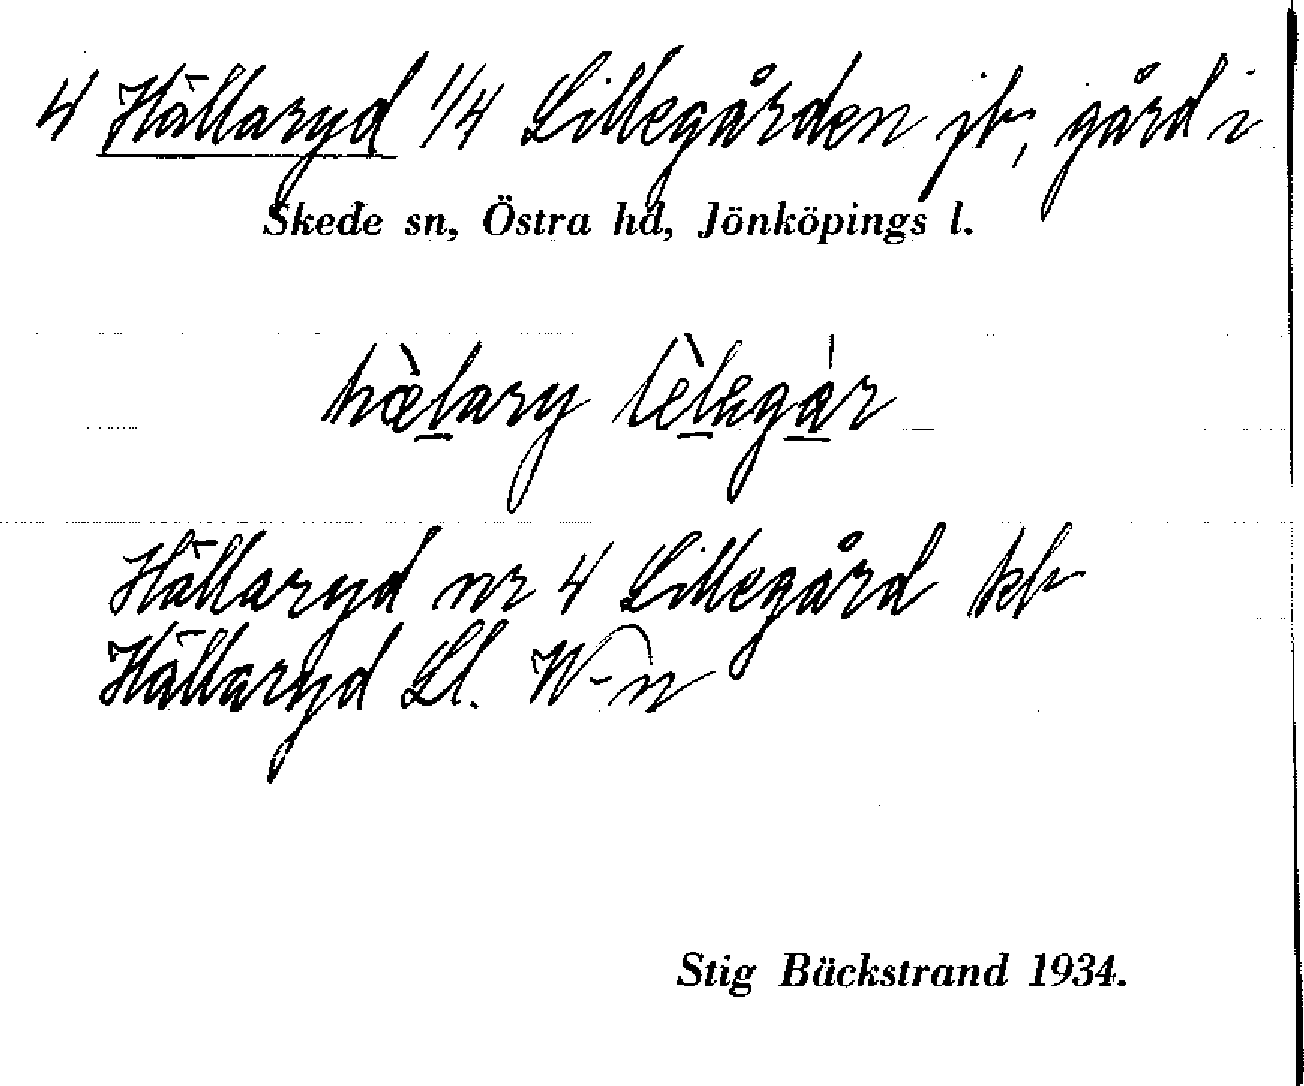 4 Hällaryd 1/4 Lillegården jb, gård i
Skede sn, Östra hd, Jönköpings l.
hæ̀lary lèlegár
Hällaryd nr 4 Lillegård kb
Hällaryd Ll. W-n
Stig Bäckstrand 1934.